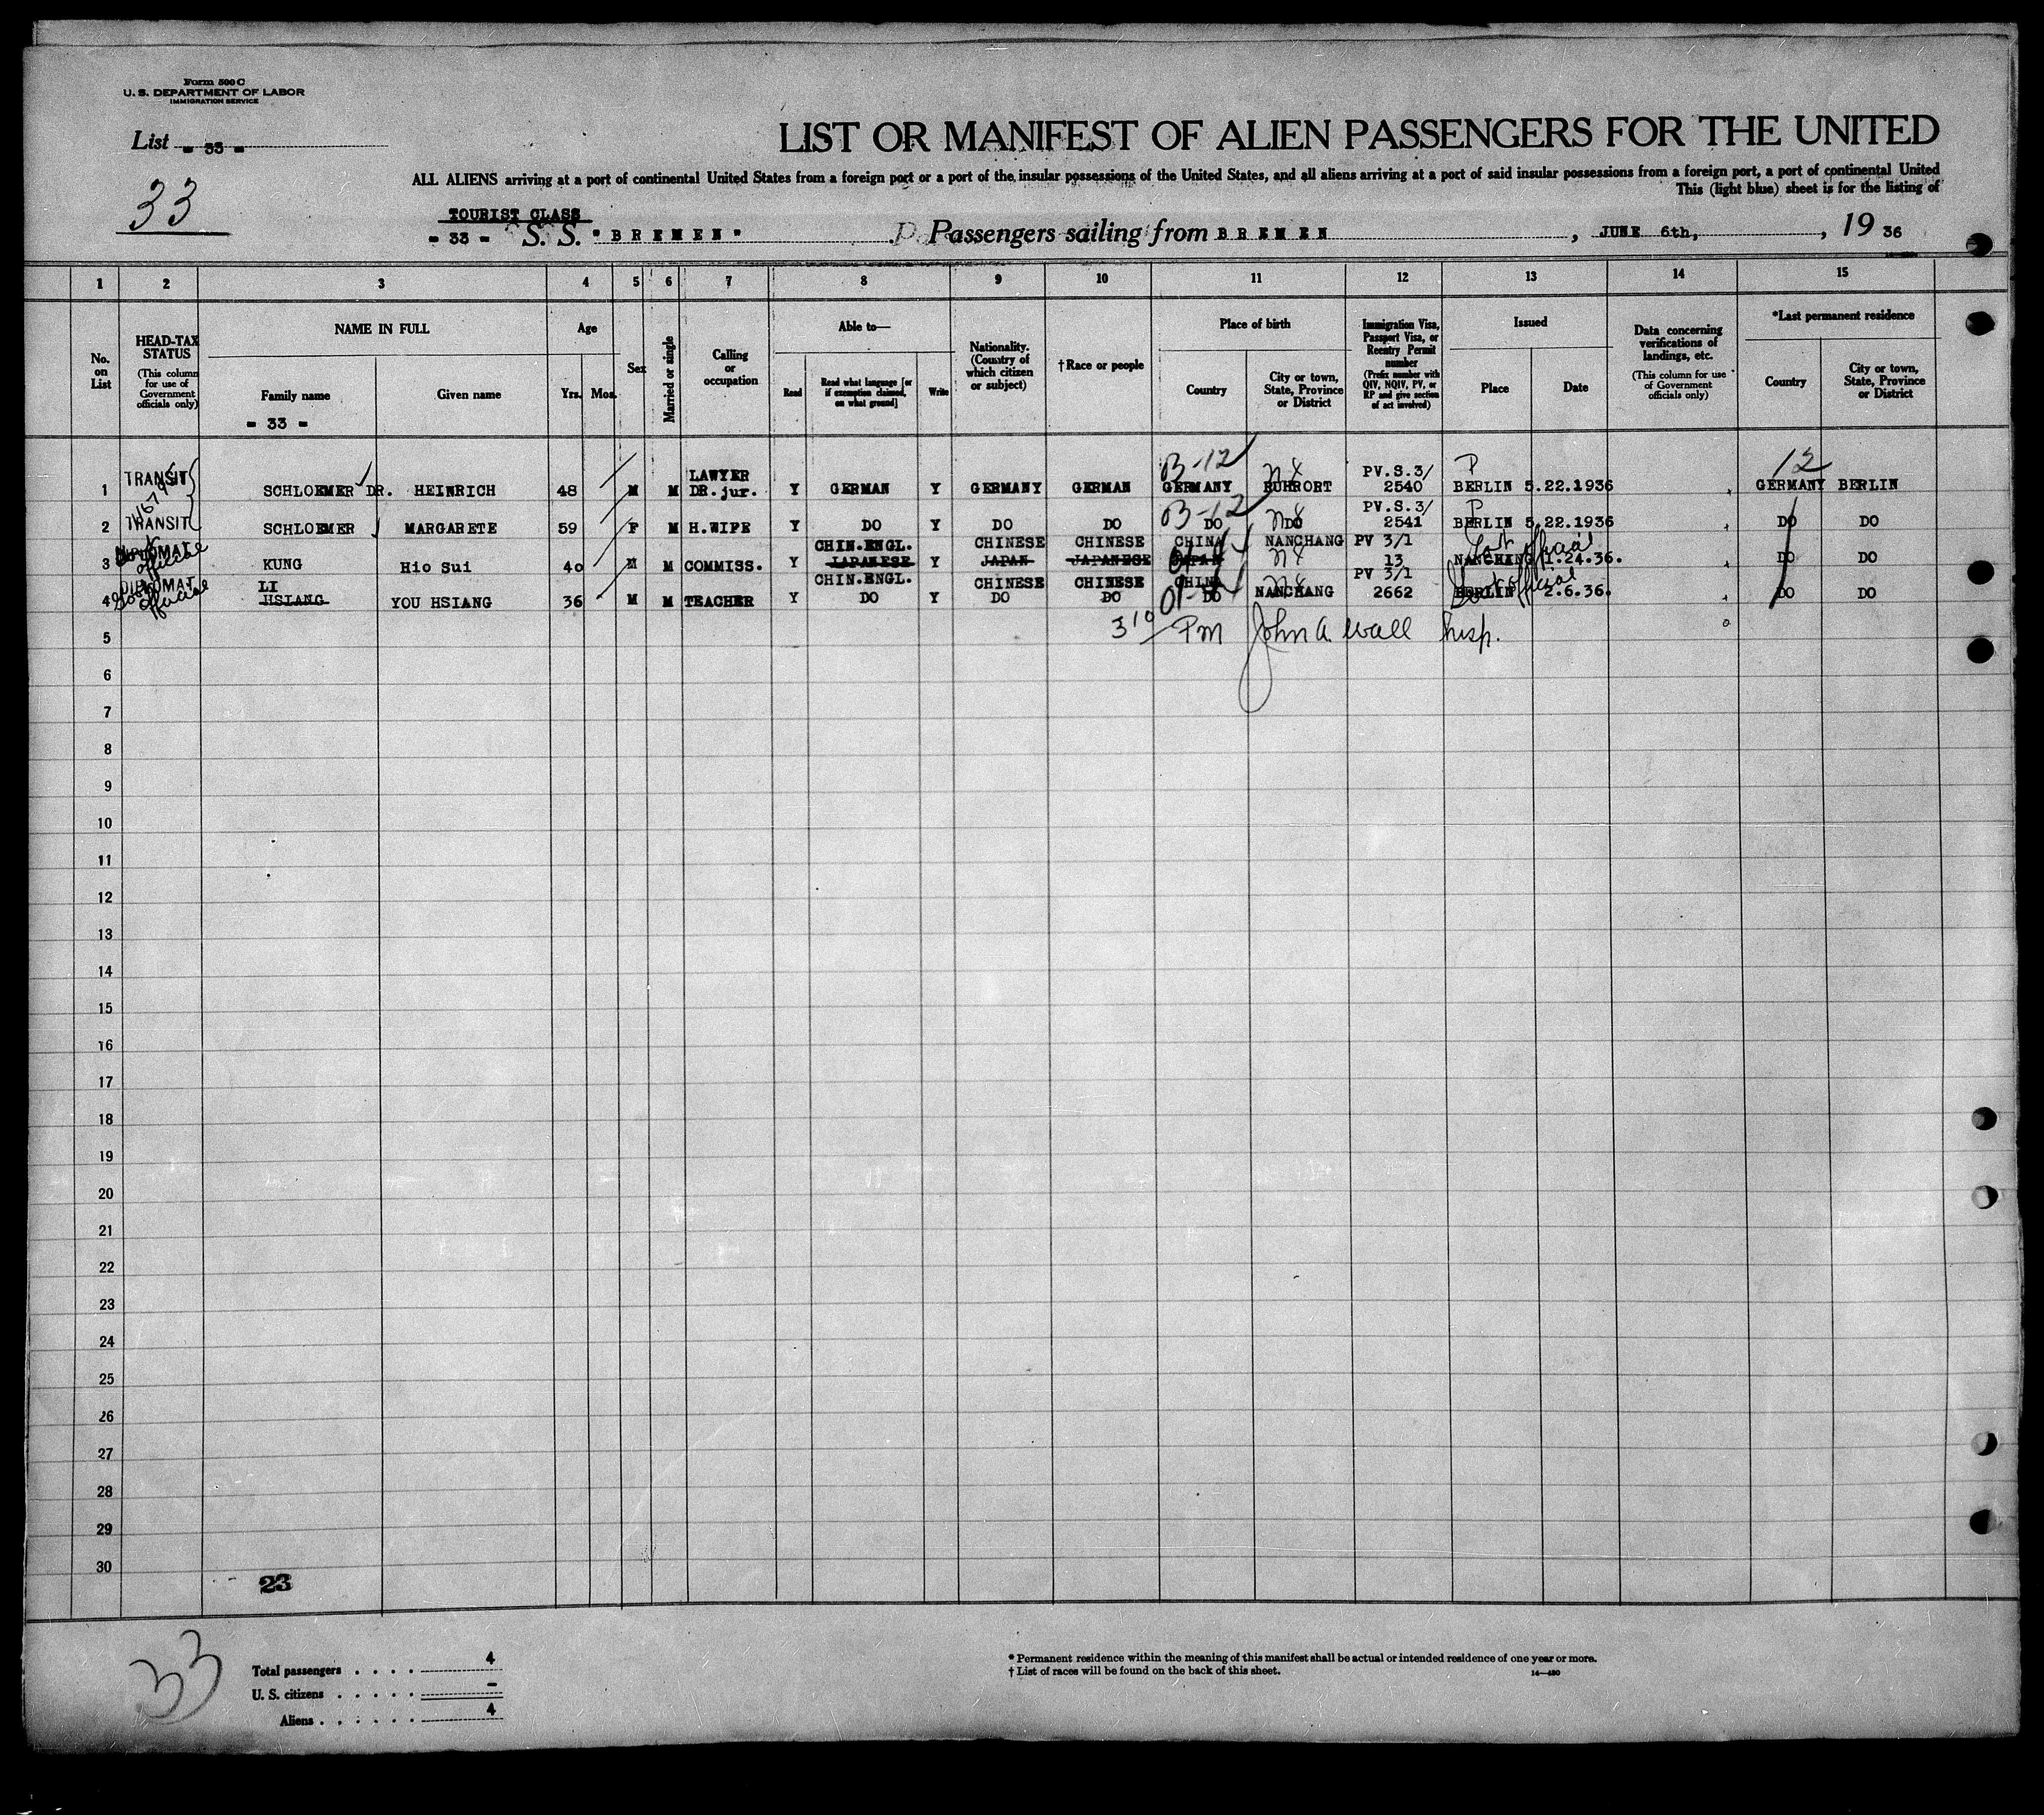 Form 500 C
U. S. DEPARTMENT OF LABOR
IMMIGRATION SERVICE
List - 33 -
33
LIST OR MANIFEST OF ALIEN PASSENGERS FOR THE UNITED
ALL ALIENS arriving at a port of continental United States from a foreign port or a port of the insular possessions of the United States, and all aliens arriving at a port of said insular possessions from a foreign port, a port of continental United
This (light blue) sheet is for the listing of
TOURIST CLASS
- 33 - S. S. "BREMEN" Passengers sailing from BREMEN, JUNE 6th, 1936
1 2 3 4 5 6 7 8 9 10 11 12 13 14 15
No. on List
HEAD-TAX STATUS (This column for use of Government officials only)
NAME IN FULL
Family name
Given name
- 33 -
Age
Yrs. Mos.
Sex
Married or single
Calling or occupation
Able to—
Read
Read what language [or if exemption claimed, on what ground]
Write
Nationality. (Country of which citizen or subject)
†Race or people
Place of birth
Country
City or town, State, Province or District
Immigration Visa, Passport Visa, or Reentry Permit number (Prefix number with QIV, NQIV, PV, or RP and give section of act involved)
Issued
Place
Date
Data concerning verifications of landings, etc. (This column for use of Government officials only)
*Last permanent residence
Country
City or town, State, Province or District
B-12 12
LAWYER PV.S.3/ P
1 TRANSIT SCHLOEMER DR. HEINRICH 48 M M DR.jur. Y GERMAN Y GERMANY GERMAN GERMANY RUHRORT 2540 BERLIN 5.22.1936 GERMANY BERLIN
B-12 PV.S.3/ P
2 TRANSIT SCHLOEMER MARGARETE 59 F M H.WIFE Y DO Y DO DO DO DO 2541 BERLIN 5.22.1936 DO DO
CHIN.ENGL. CHINESE CHINESE CHINA NANCHANG PV 3/1
3 DIPLOMAT official KUNG Hio Sui 40 M M COMMISS. Y JAPANESE Y JAPAN JAPANESE JAPAN 13 NANCHANG 1.24.36. DO DO
LI CHIN.ENGL. CHINESE CHINESE CHINA PV 3/1 Gov official
4 DIPLOMAT official HSIANG YOU HSIANG 36 M M TEACHER Y DO Y DO DO DO NANCHANG 2662 BERLIN 2.6.36. DO DO
5 3 10 Pm John A. Wall Insp.
6
7
8
9
10
11
12
13
14
15
16
17
18
19
20
21
22
23
24
25
26
27
28
29
30
23
33
Total passengers . . . . 4
U. S. citizens . . . . . -
Aliens . . . . . . 4
* Permanent residence within the meaning of this manifest shall be actual or intended residence of one year or more.
† List of races will be found on the back of this sheet.
14—480